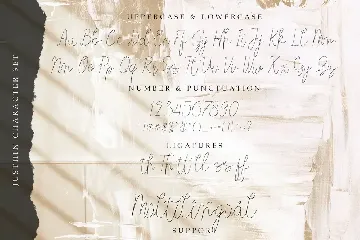 JUSTHIN CHARACTER SET
UPPERCASE & LOWERCASE
Aa Bb Cc Dd Ee Ff Gg Hh Ii Jj Kk Ll Mm
Nn Oo Pp Qq Rr Ss Tt Uu Vv Ww Xx Yy Zz
NUMBER & PUNCTUATION
1234567890
LIGATURES
th tt ll ss ff
Multilingual
SUPPORT